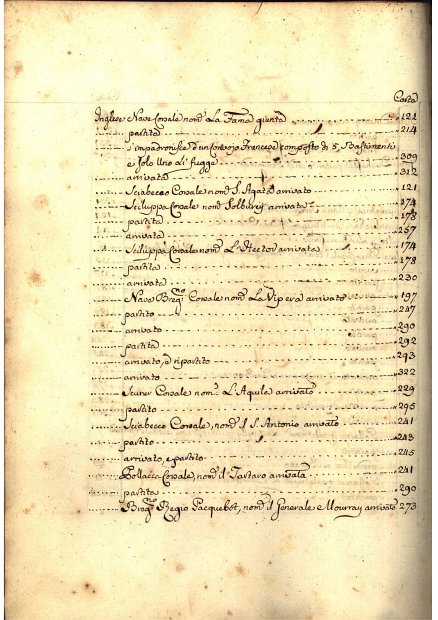 Carta
Inglese Nave Corale nom.ta La Fama giunta 121
partita 214
s'impadronisce d'un Convojo Francese composto di 5 Bastimenti
e solo Uno di fugge 309
arrivata 312
Sciabecco Corale nom.to S. Agata arrivato 121
Sciluppa Corale nom.ta Solbury arrivata 174
partita 178
arrivata 257
Sciluppa Corale nom.ta L'Hector arrivata 174
partita 178
arrivata 230
Nave Breg.no Corale nom.to La Vipera arrivato 197
partito 217
arrivato 290
partita 292
arrivato, e ripartito 293
arrivato 322
Scuner Corale nom.to L'Aquila arrivato 229
partito 295
Sciabecco Corale, nom.to il S. Antonio arrivato 241
partito 243
arrivato, e partito 245
Pollacca Corale, nom.ta il Tartaro arrivata 241
partita 290
Breg.no Regio Pacquebot, nom.to il Generale Mourray arrivato 273